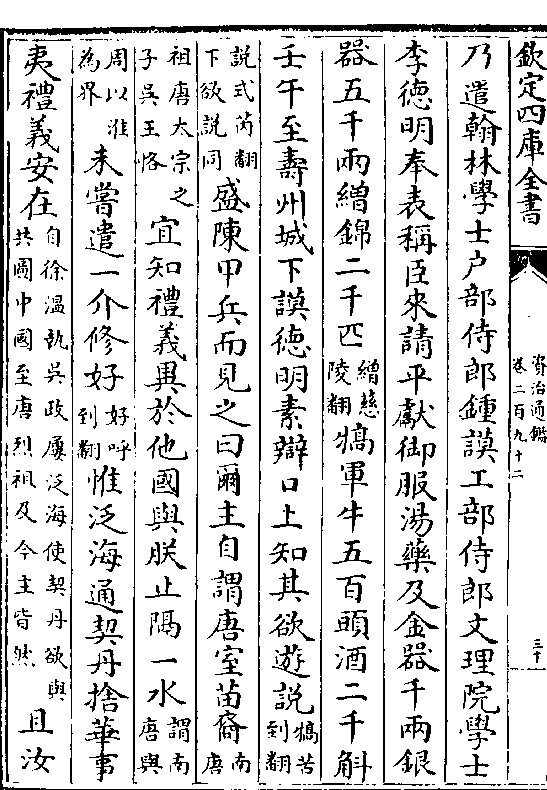 欽定四庫全書
資治通鑑
卷二百九十二
三十
乃遣翰林學士户部侍郎鍾謨工部侍郎文理院學士
李徳明奉表稱臣來請平獻御服湯藥及金器千兩銀
器五千兩繒錦二千匹繒慈陵翻犒軍牛五百頭酒二千斛
壬午至壽州城下謨徳明素辯口上知其欲遊説犒苦到翻
説式芮翻下欲説同盛陳甲兵而見之曰爾主自謂唐室苖裔南唐
祖唐太宗之子吳王恪宜知禮義異於他國與朕止隔一水謂南唐與
周以淮為界未嘗遣一介修好好呼到翻惟泛海通契丹捨華事
夷禮義安在自徐温執吳政屢泛海使契丹欲與共圖中國至唐烈祖及今主皆然且汝